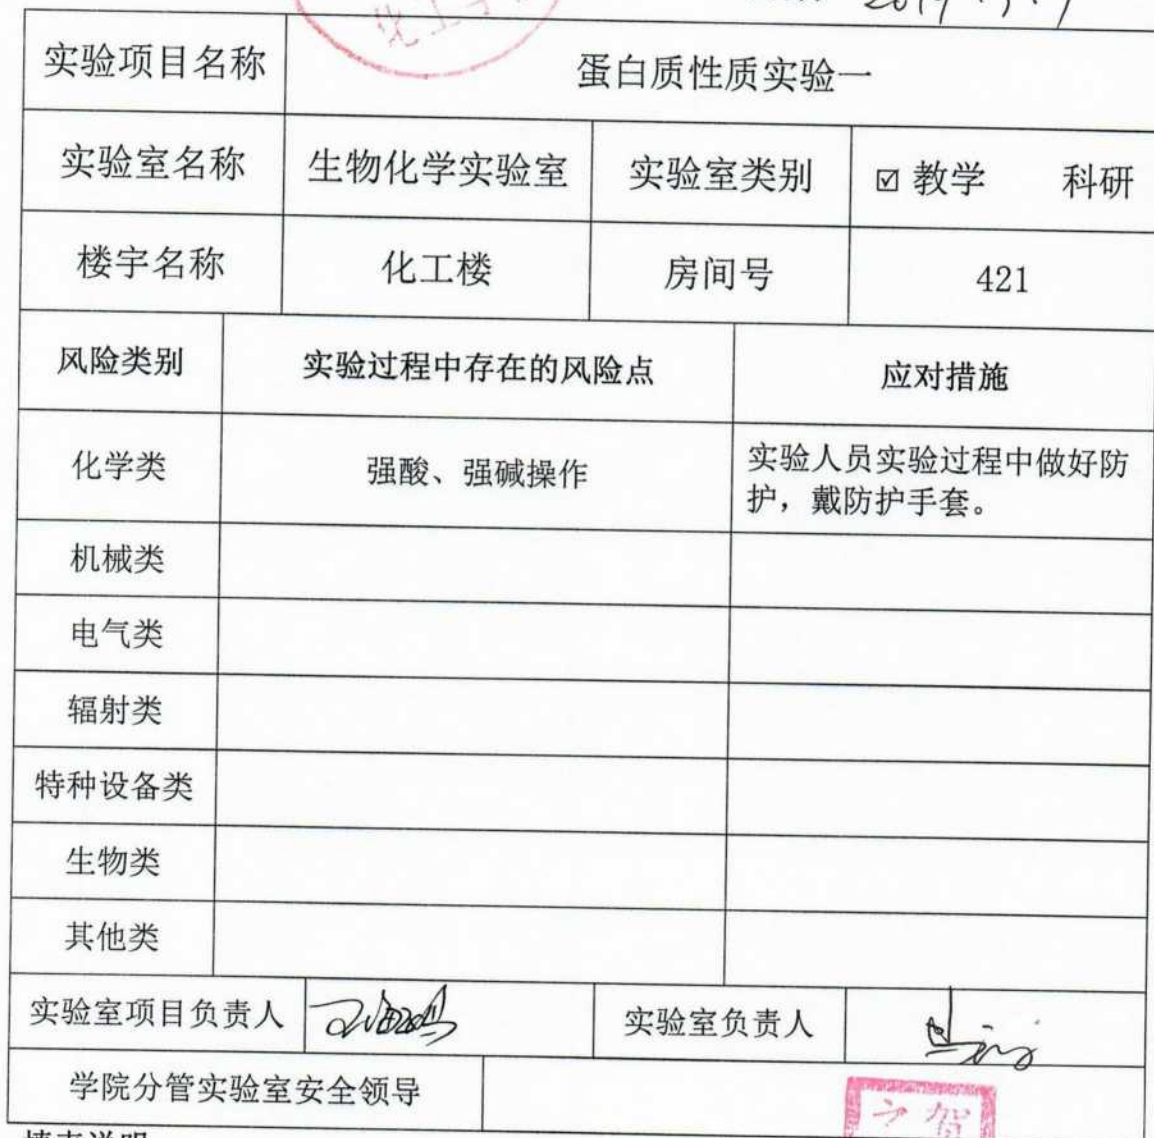 化工学
2019.
实验项目名称 蛋白质性质实验一
实验室名称 生物化学实验室 实验室类别 ☑ 教学 科研
楼宇名称 化工楼 房间号 421
风险类别 实验过程中存在的风险点 应对措施
化学类 强酸、强碱操作 实验人员实验过程中做好防
护，戴防护手套。
机械类
电气类
辐射类
特种设备类
生物类
其他类
实验室项目负责人 实验室负责人
学院分管实验室安全领导
贺
填表说明